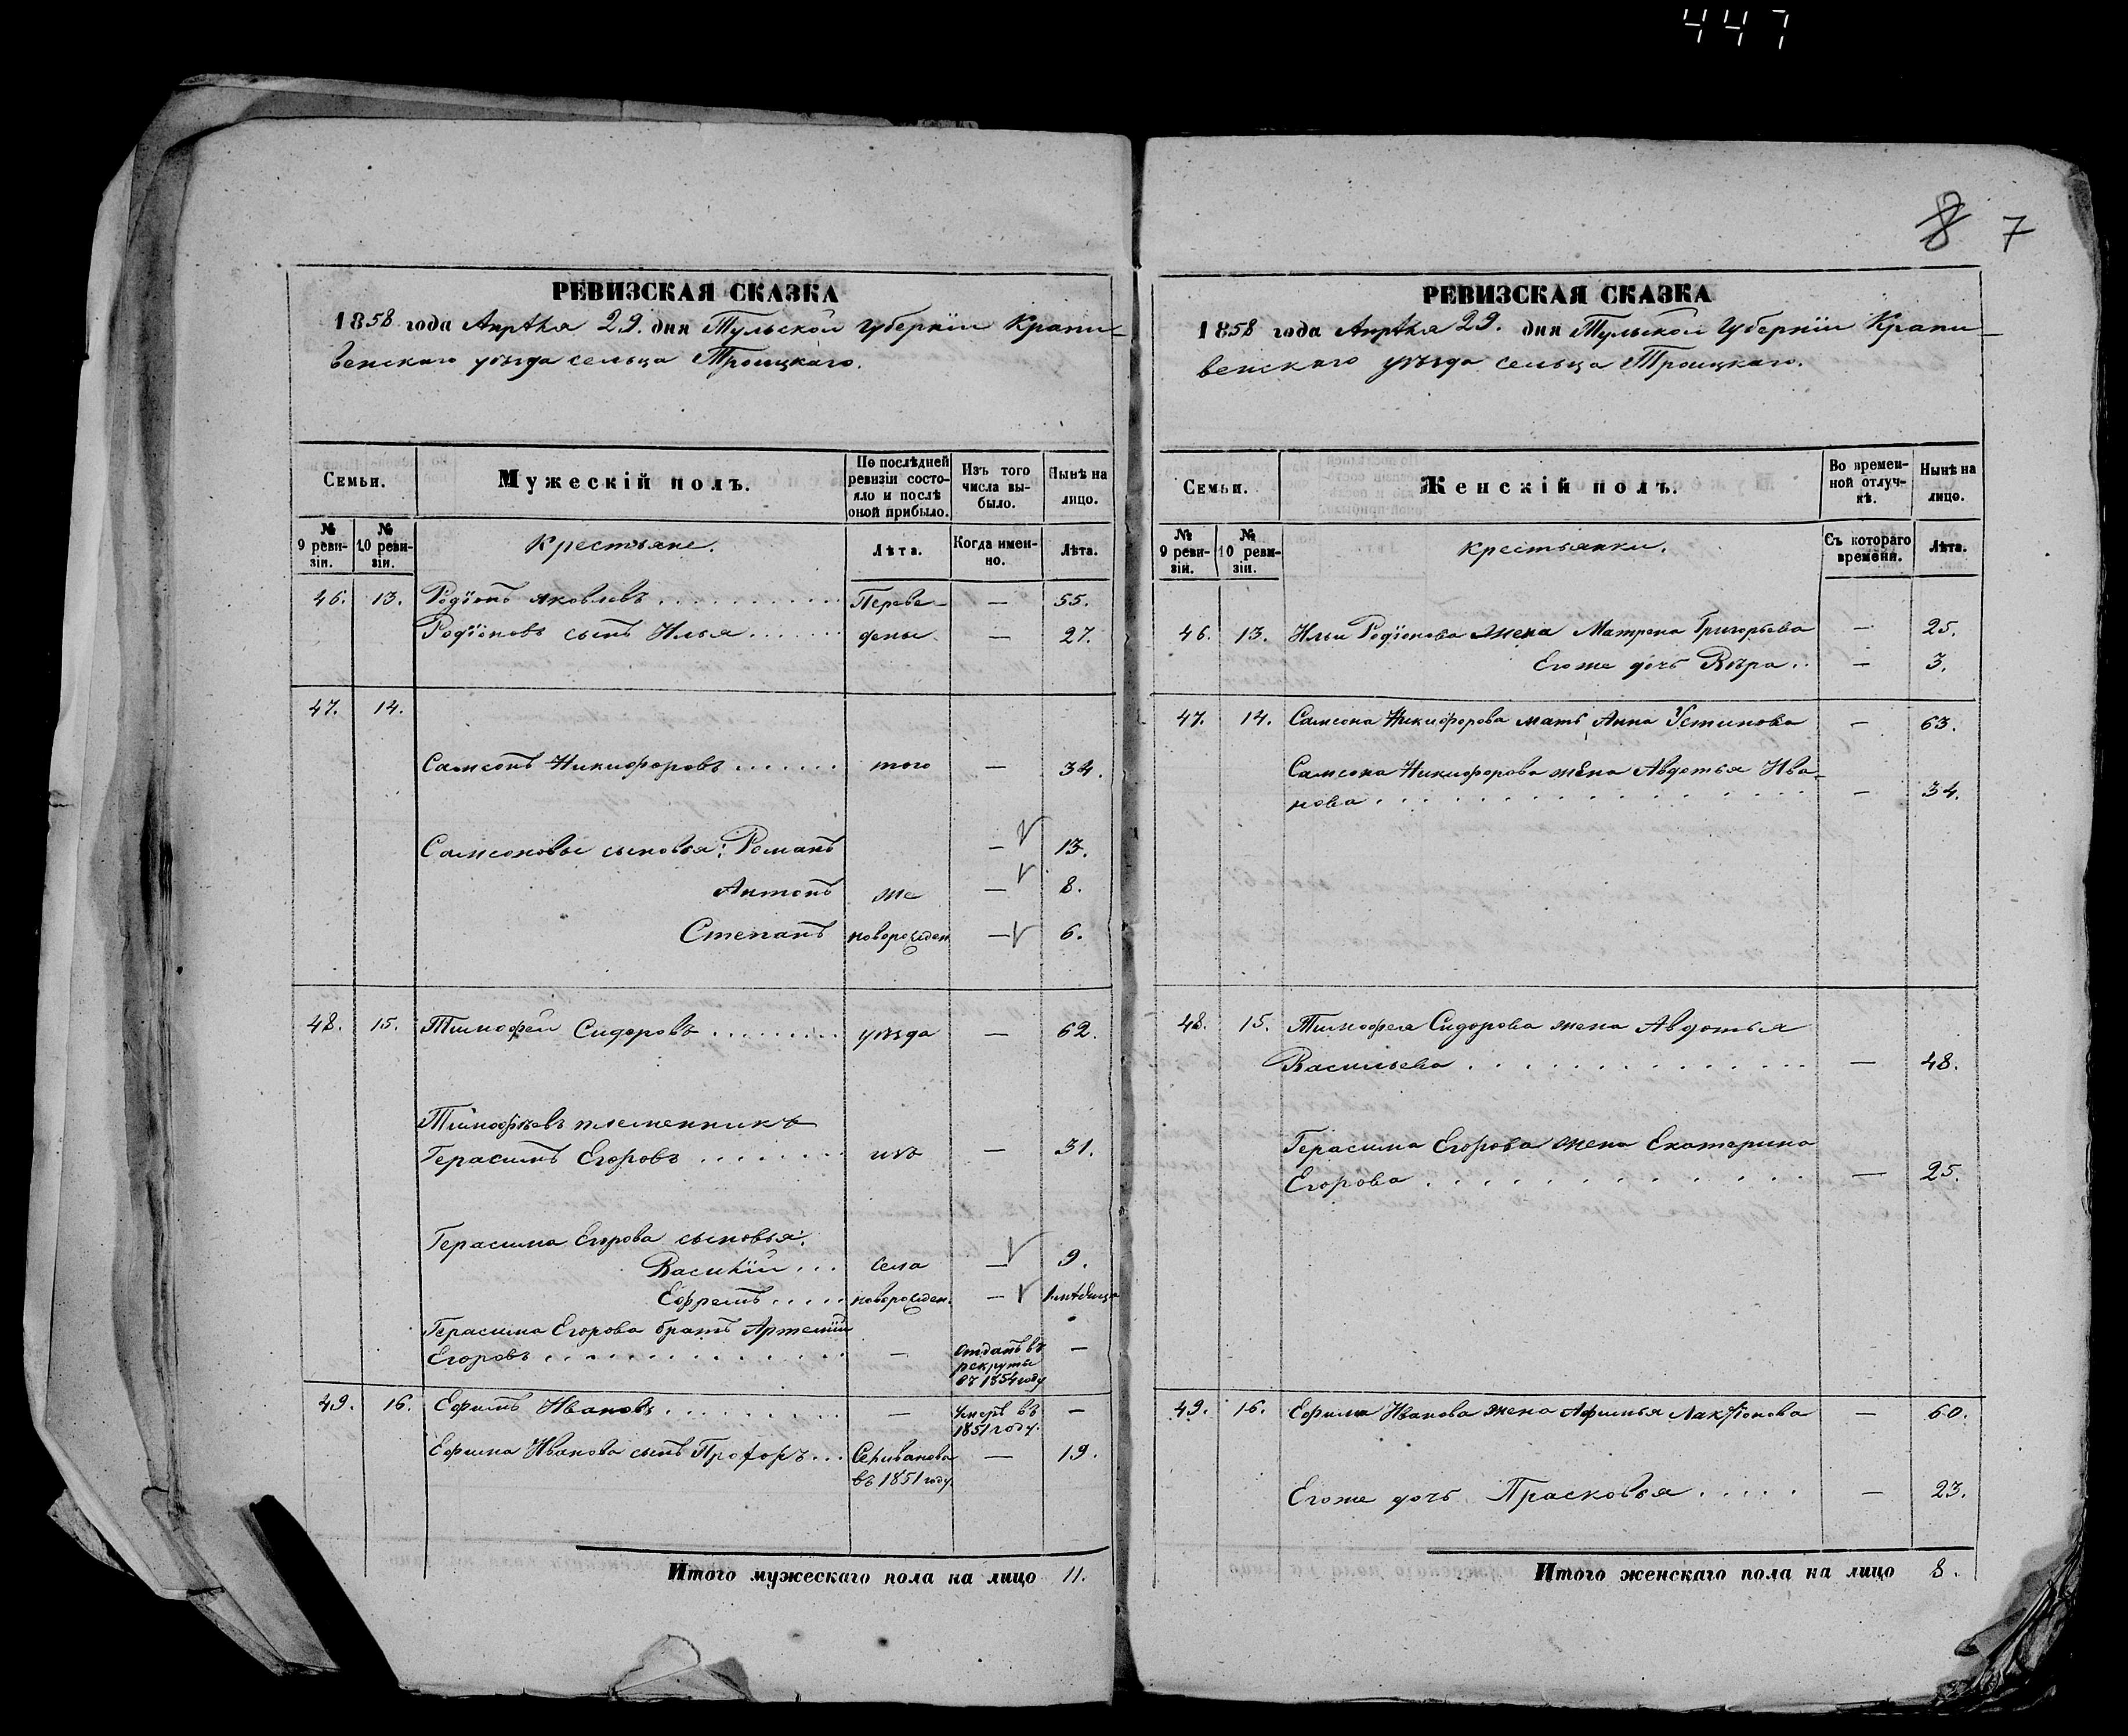 447
8 7
РЕВИЗСКАЯ СКАЗКА
1858 года Апрѣля 29. дня Тульской Губернiи Крапи-
венскаго уѣзда сельца Троицкаго.
Семьи.
Мужескiй полъ.
По послѣдней ревизiи состо-яло и послѣ оной прибыло.
Изъ того числа вы-было.
Нынѣ на лицо.
№ 9 реви-зiи.
№ 10 реви-зiи.
Крестьяне.
Лѣта.
Когда имен-но.
Лѣта.
46. 13. Родiонъ Яковлевъ . . . . . . . . . Переве- — 55.
Родiоновъ сынъ Илья . . . . . . дены — 27.
47. 14.
Самсонъ Никифоровъ . . . . . . того — 34.
Самсоновы сыновья: Романъ — 13.
Антонъ же — 8.
Степанъ новорожден. — 6.
48. 15. Тимофей Сидоровъ . . . . . . . . уѣзда — 62.
Тимофѣевъ племенникъ
Герасимъ Егоровъ . . . . . . . изъ — 31.
Герасима Егорова сыновья:
Василiй . . . села — 9.
Ефремъ . . . . . новорожден. — 1 мѣсяца
Герасима Егорова братъ Артемiй
Егоровъ . . . . . . . . . . . . . — Отданъ въ —
рекруты
въ 1854 году
49. 16. Ефимъ Ивановъ . . . . . . . . . — Умеръ въ —
1851 году.
Ефима Иванова сынъ Профоръ . . . — 19.
въ 1851 году
Итого мужескаго пола на лицо 11.
РЕВИЗСКАЯ СКАЗКА
1858 года Апрѣля 29. дня Тульской Губернiи Крапи-
венскаго уѣзда сельца Троицкаго.
Семьи.
Женскiй полъ.
Во времен-ной отлуч-кѣ.
Нынѣ на лицо.
№ 9 реви-зiи.
№ 10 реви-зiи.
Крестьянки.
Съ котораго времени.
Лѣта.
46. 13. Ильи Родiонова жена Матрена Григорьева — 25.
Его же дочь Вѣра . . — 3.
47. 14. Самсона Никифорова мать Анна Устинова — 63.
Самсона Никифорова жена Авдотья Ива-
нова . . . . . . . . . . . . . . . — 34.
48. 15. Тимофея Сидорова жена Авдотья
Васильева . . . . . . . . . . . . . — 48.
Герасима Егорова жена Екатерина
Егорова . . . . . . . . . . . . . — 25.
49. 16. Ефима Иванова жена Афимья Лакфiонова — 60.
Его же дочь Прасковья . . . . . — 23.
Итого женскаго пола на лицо 8.